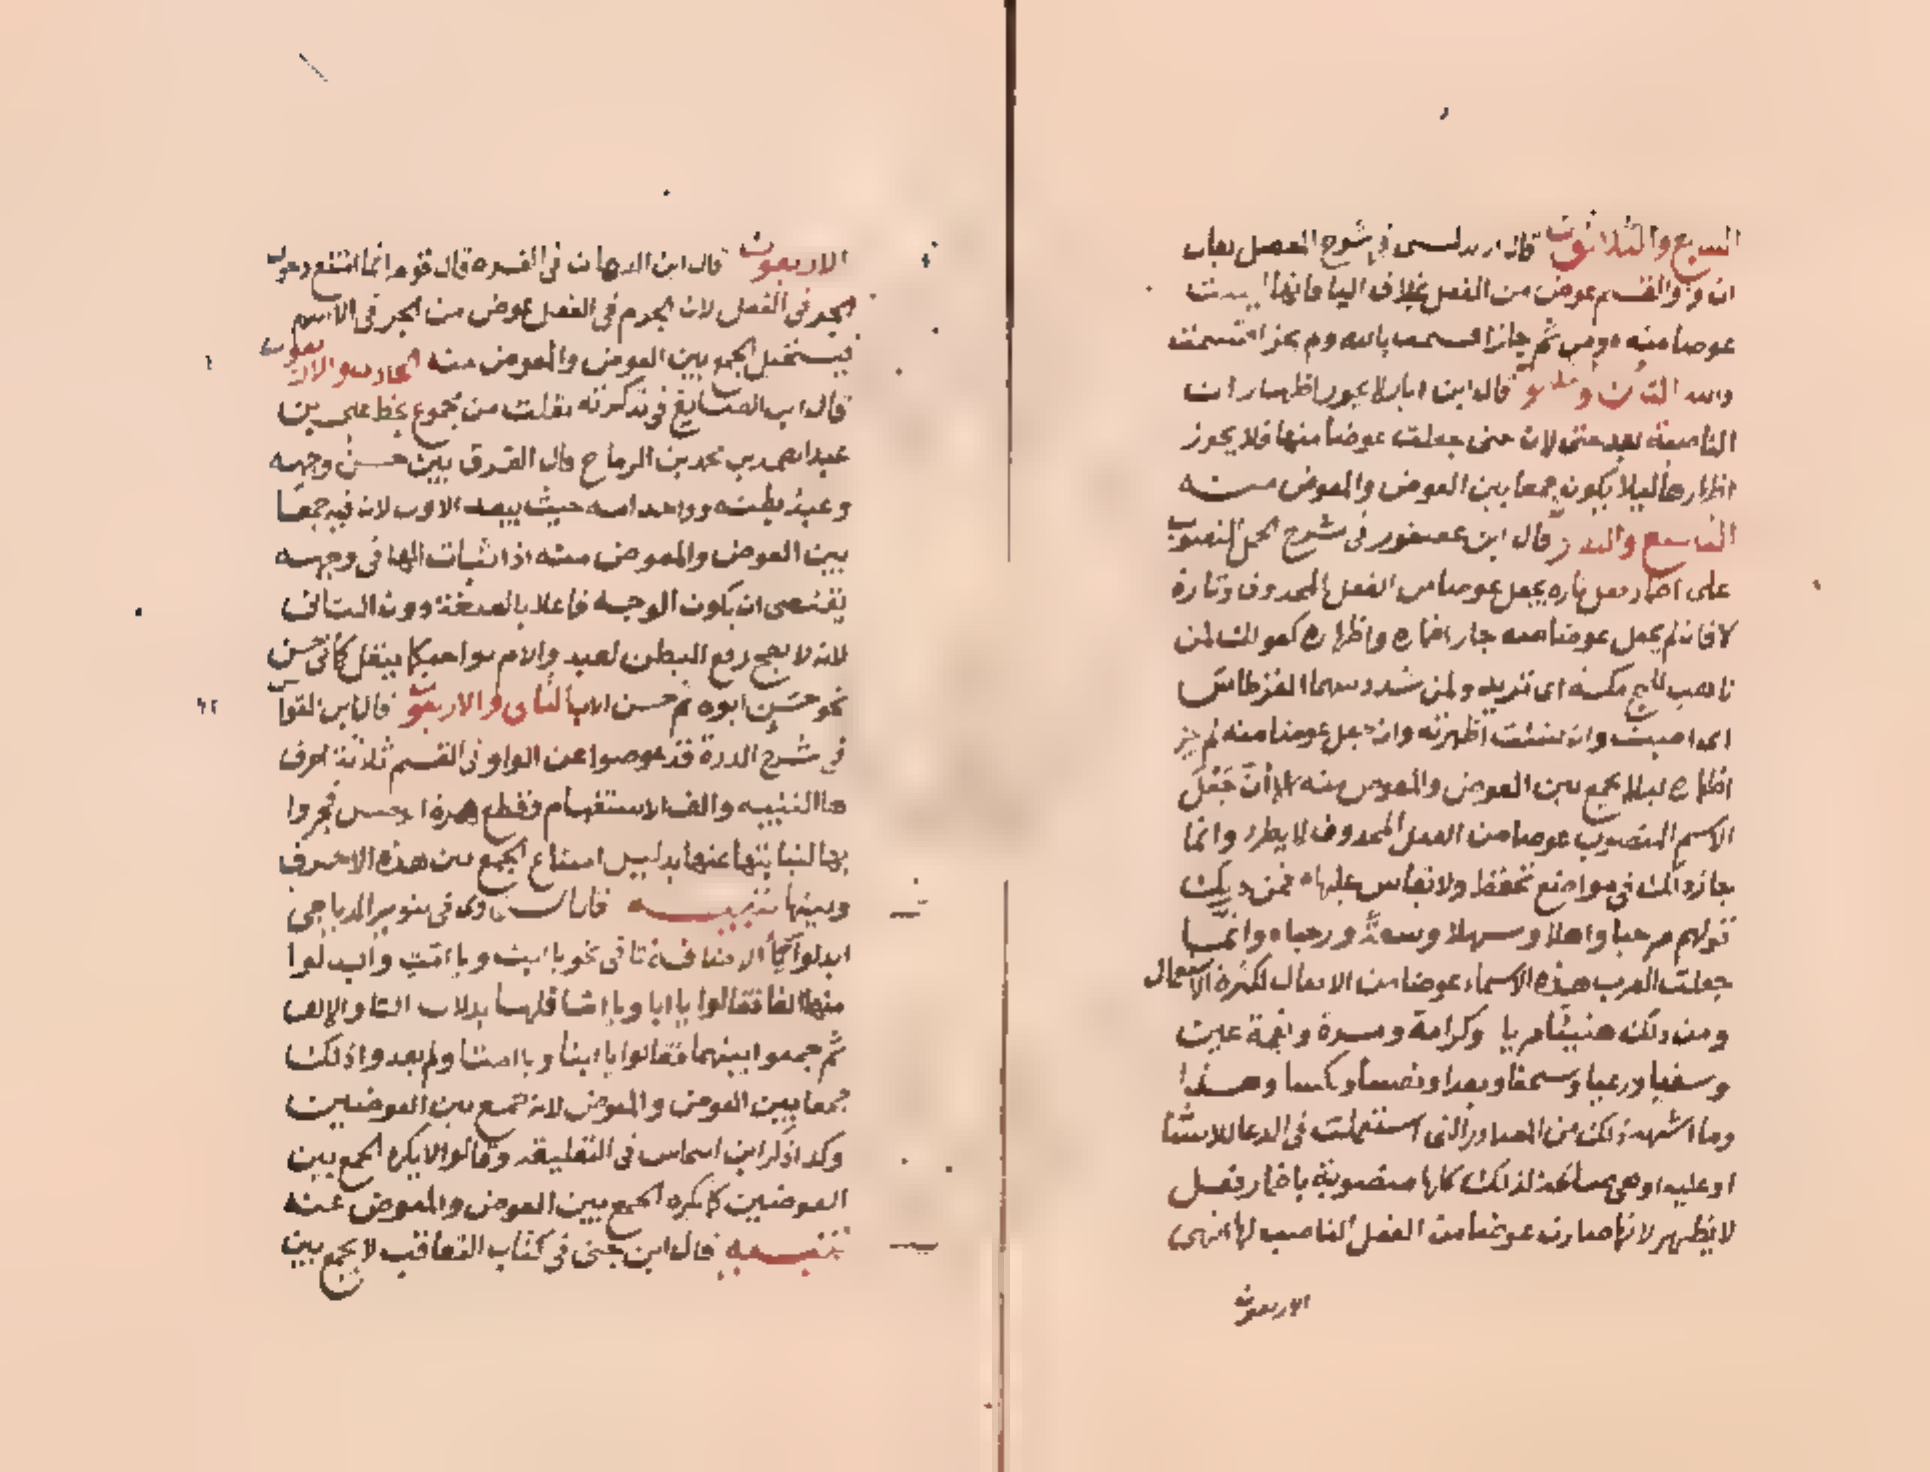 السابع والثلاثون قال الاندلسي في شرح المفصل
ان واو القسم عوض من الفعل بخلاف الباء فانها ليست
عوضا منه ومن ثم جاز اقسمت بالله ولم يجز اقسمت
والله الثامن و قال ابن اباز لا يجوز اظهار ان
الناصبة بعد حتى لان حتى جعلت عوضا منها فلا يجوز
اظهارها ليلا يكون جمعا بين العوض والمعوض منه
التاسع والثلاثون قال ابن عصفور في شرح الجمل المنصوب
على اضمار فعل تارة يجعل عوضا من الفعل المحذوف وتارة
لا فان لم يجعل عوضا منه جاز اضماره واظهاره كقولك لمن
تاهب للحج مكة اى تريد ولمن سدد سهما القرطاس
اى اصبت وان شئت اظهرته وان جعل عوضا منه لم يجز
اظهاره ليلا يجمع بين العوض والمعوض منه الا أن جعل
الاسم المنصوب عوضا من الفعل المحذوف لا يطرد وانما
جاز ذلك في مواضع تحفظ ولا يقاس عليها فمن ذلك
قولهم مرحبا واهلا وسهلا وسعة ورحبا وانما
جعلت العرب هذه الاسماء عوضا من الافعال لكثرة الاستعمال
ومن ذلك هنيئا مريا وكرامة ومسرة ونعمة عين
وسقيا ورعيا وسحقا وبعدا وتعسا ونكسا وهذا
وما اشبهه ذلك من المصادر التي استعملت في الدعا للانسان
او عليه او هي مضاهية لذلك كلها منصوبة باضمار فعل
لا يظهر لانها صارت عوضا من الفعل الناصب لها انتهى
الاربعون
الاربعون قال ابن الدهان في الغره قال قوم انما امتنع دخول
الجر في الفعل لان الجزم في الفعل عوض من الجر في الاسم
فيستحيل الجمع بين العوض والمعوض منه الحادى والاربعون
قال ابن الصايغ في تذكرته نقلت من مجموع بخط على بن
عبد الصمد بن محمد بن الرماح قال الفرق بين حسن وجهه
وعبد بطنه وواحد امه حيث الاول لان فيه جمعا
بين العوض والمعوض منه اذ اثبات الها في وجهه
يقتضى ان يكون الوجه فاعلا بالصفة دون الثانى
لانه لا يصح رفع البطن لعبد والام لواحد ينقل كما في حسن
نحو حسن ابوه ثم حسن الاب الثانى والاربعون قال ابن القواس
في شرح الدرة قد عوضوا عن الواو في القسم ثلاثة احرف
ها التنبيه والف الاستفهام وقطع همزة فجروا
بها لنيابتها عنها بدليل امتناع الجمع بين هذه الاحرف
وبينها تنبيـه قال السخاوى في تنوير الدياجى
ابدلوا ياء الاضافة تا في نحو يا ابت ويا امت وابدلوا
منها الفا فقالوا يا ابا ويا اما
ثم جمعوا بينهما فقالوا يا ابتا ويا امتا ولم يعدوا ذلك
جمعا بين العوض والمعوض لانه جمع بين العوضين
وكذا ذكر ابن النحاس في التعليقة وقالوا لا يكره الجمع بين
العوضين كما يكره الجمع بين العوض والمعوض عنه
تنبيـه قال ابن جنى في كتاب التعاقب لا يجمع بين